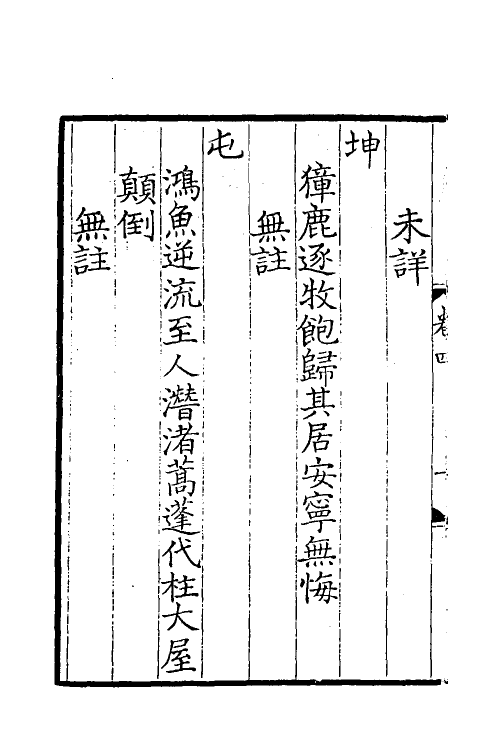 未詳
坤
獐鹿逐牧飽歸其居安寧無悔
無註
屯
鴻魚逆流至人潛渚蒿蓬代柱大屋
顛倒
無註